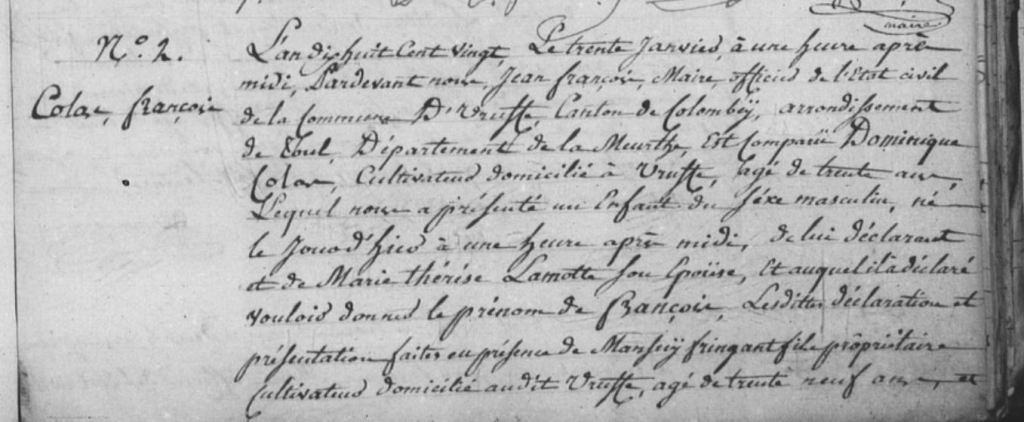 maire
N.º 2.
Colas, françois
L'an dixhuit Cent vingt, Le trente Janvier, à une heure après
midi, Pardevant nous, Jean françois, Maire, officier de l'Etat civil
de la Commune D'Uruffe, Canton de Colombëy, arrondissement
de Toul, Département de la Meurthe, Est Comparü Dominique
Colas, Cultivateur domicilié à Uruffe, agé de trente ans,
Lequel nous a présenté un Enfant du séxe masculin, né
le Jour d'hier à une heure après midi, de lui déclarant
et de Marie thérèse Lamotte son Epoüse, Et auquel il a déclaré
vouloir donner le prénom de françois, Lesdittes déclaration et
présentation faites en présence de Mansuÿ fringant fils propriétaire
Cultivateur domicilié audit Uruffe, agé de trente neuf ans, et